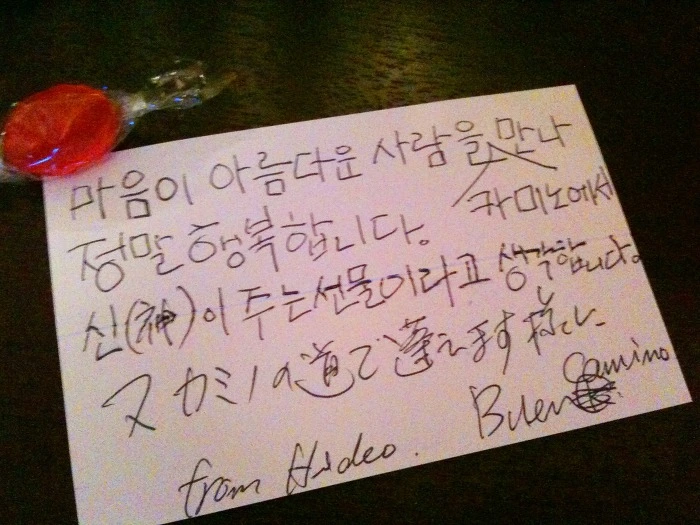 마음이 아름다운 사람을 만나
카미노에서
정말 행복합니다.
신(神)이 주는선물이라고 생각합니다.
又カミノの道で逢えます様に
Buen Camino
from Hideo.